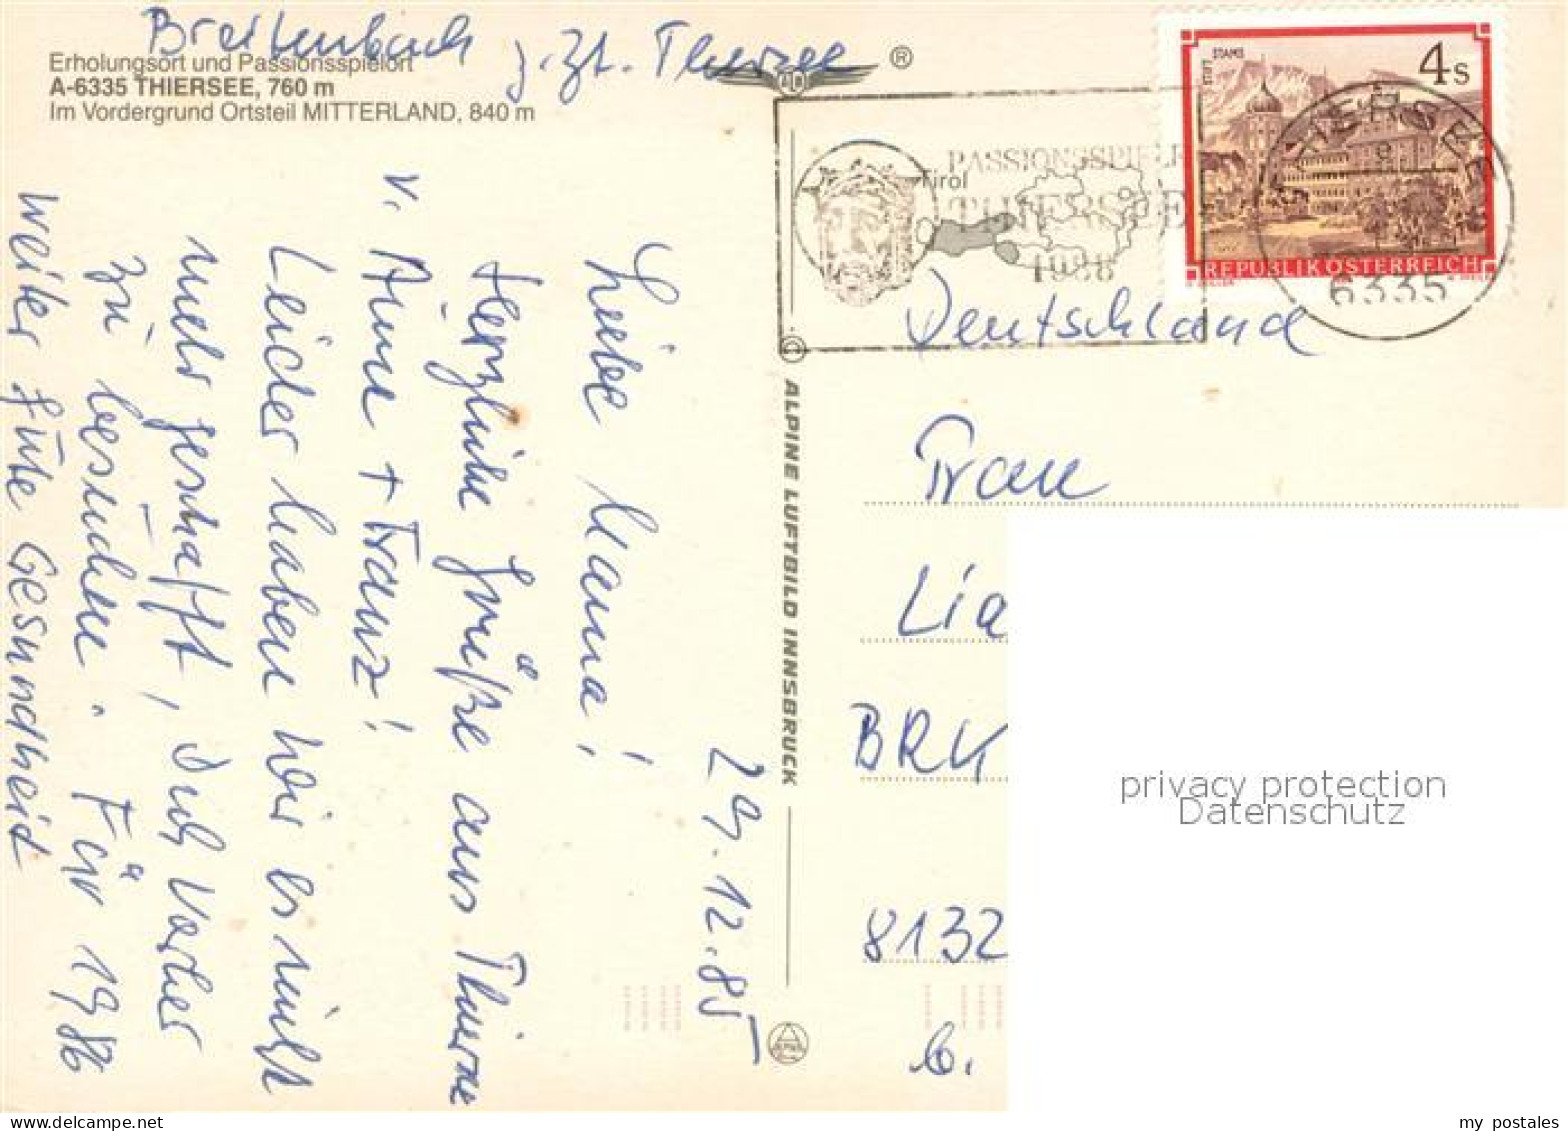 Breitenbach z. Zt. Thiersee
Erholungsort und Passionsspielort
A-6335 THIERSEE, 760 m
Im Vordergrund Ortsteil MITTERLAND, 840 m
®
29.12.85
Liebe Mama!
Herzliche Grüße aus Thiersee
v. Anne + Franz!
Leider haben wir es nicht
mehr geschafft, Dich vorher
zu besuchen. Für 1986
weiter gute Gesundheit
ALPINE LUFTBILD INNSBRUCK
Tirol
PASSIONSSPIELE
THIERSEE
1988
STIFT STAMS
4 S
REPUBLIK ÖSTERREICH
THIERSEE
e
6335
Deutschland
Frau
Lia
BRK
8132
b.
privacy protection
Datenschutz
my postales